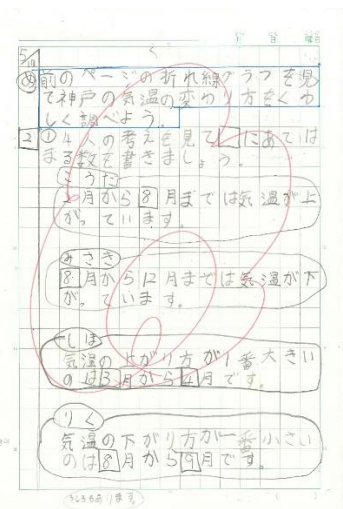 月 日 曜日
5/10
め 前のページの折れ線グラフを見
て神戸の気温の変わり方をくわ
しく調べよう。
2 ① 4人の考えを見て□にあては
まる数を書きましょう。
こうた
2月から8月までは気温が上
がっています。
みさき
8月から12月までは気温が下
がっています。
しほ
気温の上がり方が1番大きい
のは3月から4月です。
りく
気温の下がり方が一番小さい
のは8月から9月です。
うしろもあります。